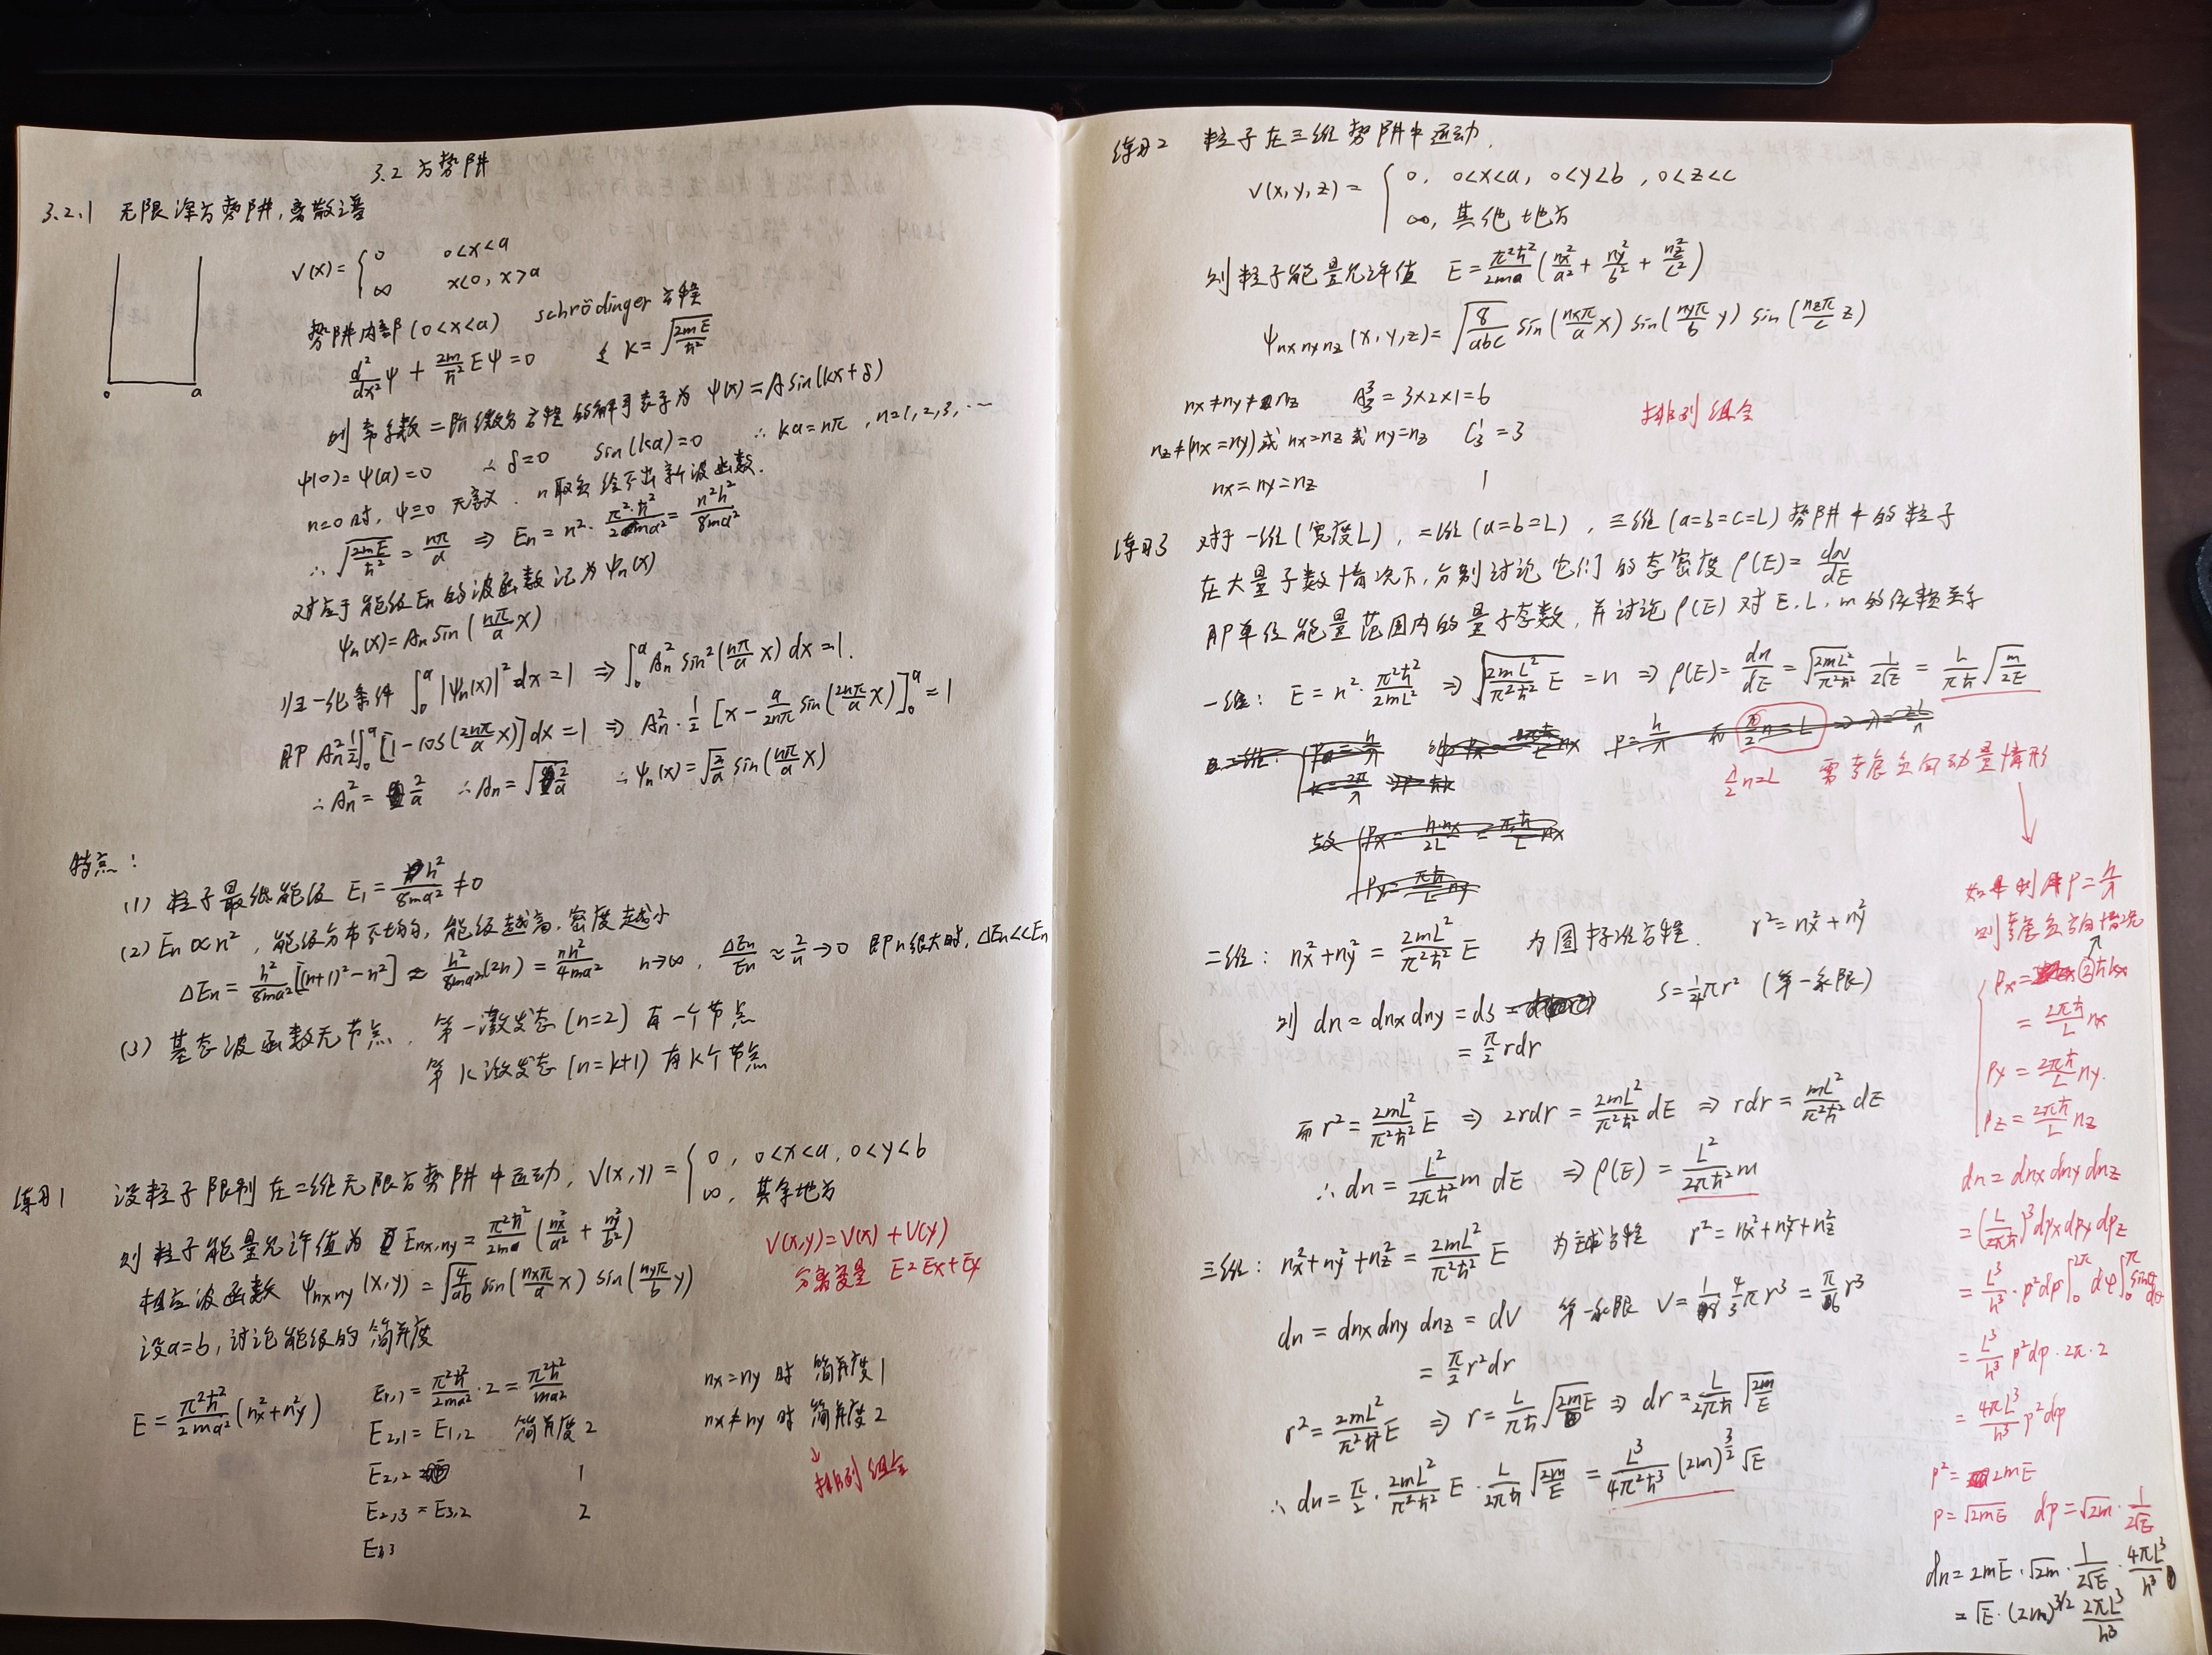 3.2 方势阱
3.2.1 无限深方势阱,离散谱
V(x) = { 0 0<x<a
∞ x<0, x>a
0 a
势阱内部 (0<x<a) schrödinger 方程
d²/dx² ψ + 2m/ħ² Eψ = 0 令 k = √(2mE/ħ²)
则常系数二阶微分方程的解可表示为 ψ(x) = A sin(kx+δ)
ψ(0) = ψ(a) = 0 ∴ δ=0 sin(ka)=0 ∴ ka = nπ, n=1,2,3,…
n=0时, ψ≡0 无意义. n取负给不出新波函数.
∴ √(2mE/ħ²) = nπ/a ⇒ En = n²·π²·ħ²/2ma² = n²h²/8ma²
对应于能级En的波函数记为 ψn(x)
ψn(x) = An sin(nπ/a x)
归一化条件 ∫₀ᵃ |ψn(x)|² dx = 1 ⇒ ∫₀ᵃ An² sin²(nπ/a x) dx = 1.
即 An² 1/2 ∫₀ᵃ [1-cos(2nπ/a x)] dx = 1 ⇒ An²·1/2 [x - a/2nπ sin(2nπ/a x)]₀ᵃ = 1
∴ An² = 2/a ∴ An = √(2/a) ∴ ψn(x) = √(2/a) sin(nπ/a x)
特点:
(1) 粒子最低能级 E₁ = h²/8ma² ≠ 0
(2) En ∝ n², 能级分布不均匀, 能级越高, 密度越小
ΔEn = h²/8ma² [(n+1)²-n²] ≈ h²/8ma² (2n) = nh²/4ma² n→∞, ΔEn/En ≈ 2/n → 0 即n很大时, ΔEn<<En
(3) 基态波函数无节点, 第一激发态 (n=2) 有一个节点
第k激发态 (n=k+1) 有k个节点
练习1 设粒子限制在二维无限方势阱中运动, V(x,y) = { 0, 0<x<a, 0<y<b
∞, 其余地方
则粒子能量允许值为 Enx,ny = π²ħ²/2ma (nx²/a² + ny²/b²)
V(x,y) = V(x) + V(y)
相应波函数 ψnxny(x,y) = √(4/ab) sin(nxπ/a x) sin(nyπ/b y)
分离变量 E=Ex+Ey
设a=b, 讨论能级的简并度
E = π²ħ²/2ma² (nx²+ny²)
E1,1 = π²ħ²/2ma²·2 = π²ħ²/ma²
nx=ny 时 简并度1
E2,1 = E1,2 简并度2
nx≠ny 时 简并度2
E2,2 1
↓排列组合
E2,3 = E3,2 2
E3,3
练习2 粒子在三维势阱中运动,
V(x,y,z) = { 0, 0<x<a, 0<y<b, 0<z<c
∞, 其他地方
则粒子能量允许值 E = π²ħ²/2ma (nx²/a² + ny²/b² + nz²/c²)
ψnxnynz(x,y,z) = √(8/abc) sin(nxπ/a x) sin(nyπ/b y) sin(nzπ/c z)
nx≠ny≠nz A₃³ = 3×2×1=6
nz≠(nx=ny) 或 nx=nz 或 ny=nz C₃¹ = 3
排列组合
nx=ny=nz 1
练习3 对于一维(宽度L), 二维(a=b=L), 三维(a=b=c=L)势阱中的粒子
在大量子数情况下, 分别讨论它们的态密度 ρ(E) = dN/dE
即单位能量范围内的量子态数, 并讨论 ρ(E) 对 E, L, m 的依赖关系
一维: E = n²·π²ħ²/2mL² ⇒ √(2mL²/π²ħ² E) = n ⇒ ρ(E) = dn/dE = √(2mL²/π²ħ²) 1/2√E = L/πħ √(m/2E)
λ/2 n=L 需考虑负向动量情形
二维: nx²+ny² = 2mL²/π²ħ² E 为圆标准方程. r² = nx²+ny²
则 dn = dnx dny = ds S = 1/4 πr² (第一象限)
= π/2 rdr
而 r² = 2mL²/π²ħ² E ⇒ 2rdr = 2mL²/π²ħ² dE ⇒ rdr = mL²/π²ħ² dE
∴ dn = L²/2πħ² m dE ⇒ ρ(E) = L²/2πħ² m
三维: nx²+ny²+nz² = 2mL²/π²ħ² E 为球方程 r² = nx²+ny²+nz²
dn = dnx dny dnz = dV 第一象限 V = 1/8 4/3 πr³ = π/6 r³
= π/2 r²dr
r² = 2mL²/π²ħ² E ⇒ r = L/πħ √(2mE) ⇒ dr = L/2πħ √(2m/E)
∴ dn = π/2 · 2mL²/π²ħ² E · L/2πħ √(2m/E) = L³/4π²ħ³ (2m)^(3/2) √E
如果利用 P = h/λ
则考虑负方向情况
Px = ②ħkx
= 2πħ/L nx
Py = 2πħ/L ny.
Pz = 2πħ/L nz
dn = dnx dny dnz
= (L/2πħ)³ dpx dpy dpz
= L³/h³ · p²dp ∫₀^2π dφ ∫₀^π sinθ dθ
= L³/h³ p²dp · 2π · 2
= 4πL³/h³ p²dp
p² = 2mE
p = √2mE dp = √2m · 1/2√E
dn = 2mE · √2m · 1/2√E · 4πL³/h³
= √E · (2m)^(3/2) 2πL³/h³